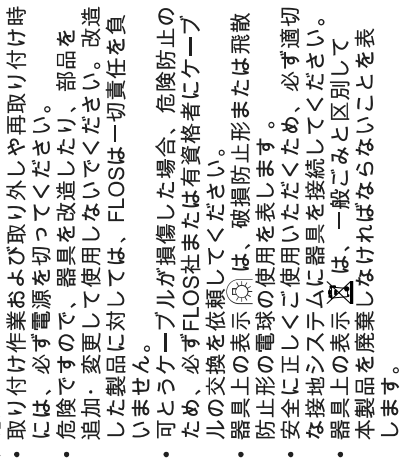 • 取り付け作業および取り外しや再取り付け時
には、必ず電源を切ってください。
• 危険ですので、器具を改造したり、部品を
追加・変更して使用しないでください。改造
した製品に対しては、FLOSは一切責任を負
いません。
• 可とうケーブルが損傷した場合、危険防止の
ため、必ずFLOS社または有資格者にケーブ
ルの交換を依頼してください。
• 器具上の表示は、破損防止形または飛散
防止形の電球の使用を表します。
• 安全に正しくご使用いただくため、必ず適切
な接地システムに器具を接続してください。
• 器具上の表示は、一般ごみと区別して
本製品を廃棄しなければならないことを表
します。